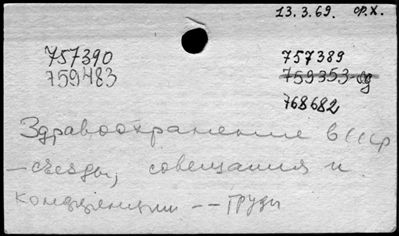 13.3.69. ор.х.
757390 757389
759483 759353-ед
768682
Здравоохранение в СССР
- съезды, совещания и
конференции -- Труды